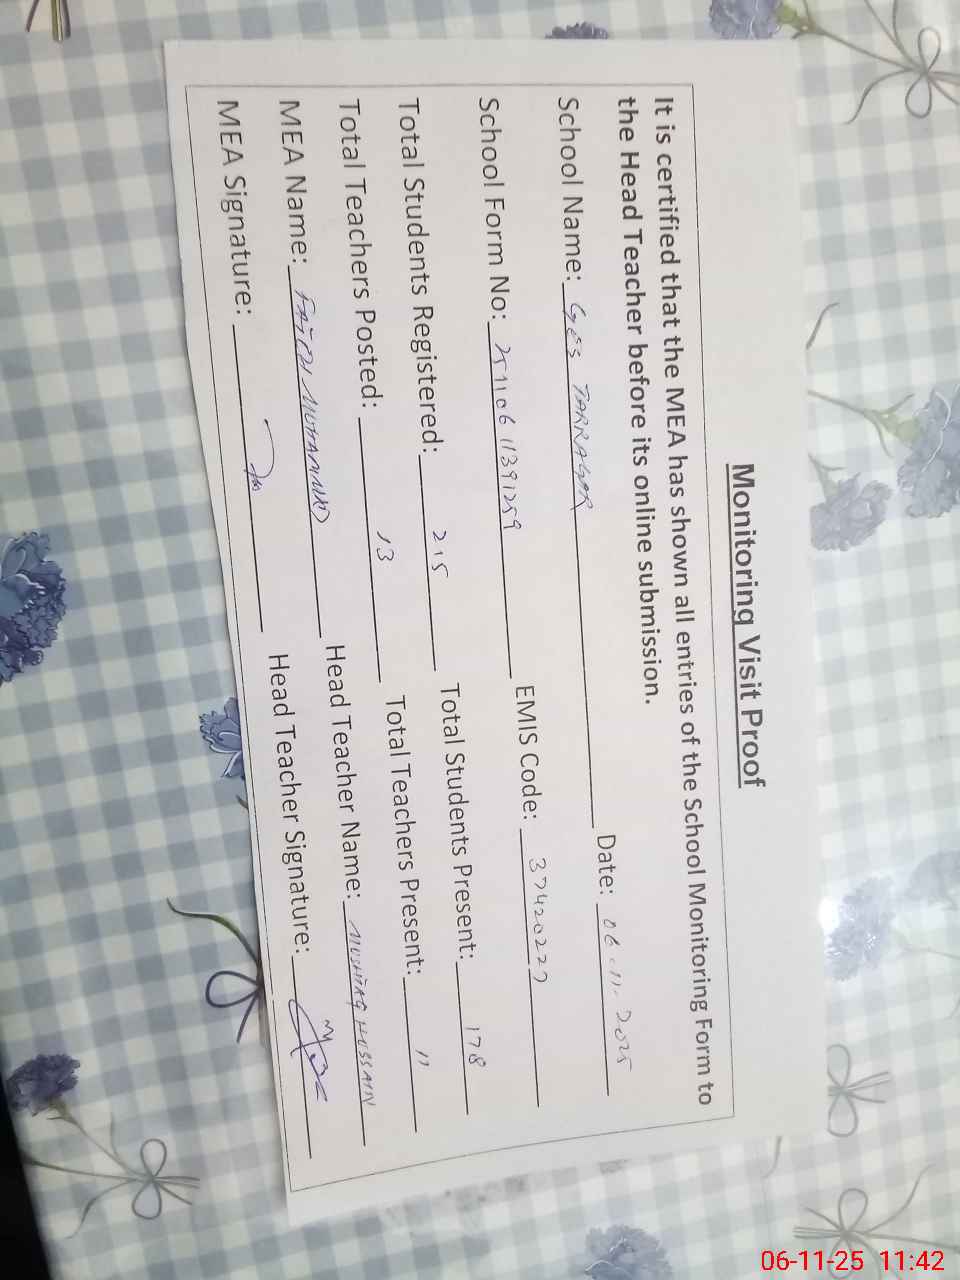 Monitoring Visit Proof
It is certified that the MEA has shown all entries of the School Monitoring Form to
the Head Teacher before its online submission.
School Name: GES TARRAGAR Date: 06-11-2025
School Form No: 25110611391259 EMIS Code: 37420227
Total Students Registered: 215 Total Students Present: 178
Total Teachers Posted: 13 Total Teachers Present: 11
MEA Name: FATEH MUHAMMAD Head Teacher Name: MUSHTAQ HUSSAIN
MEA Signature: Head Teacher Signature:
06-11-25 11:42